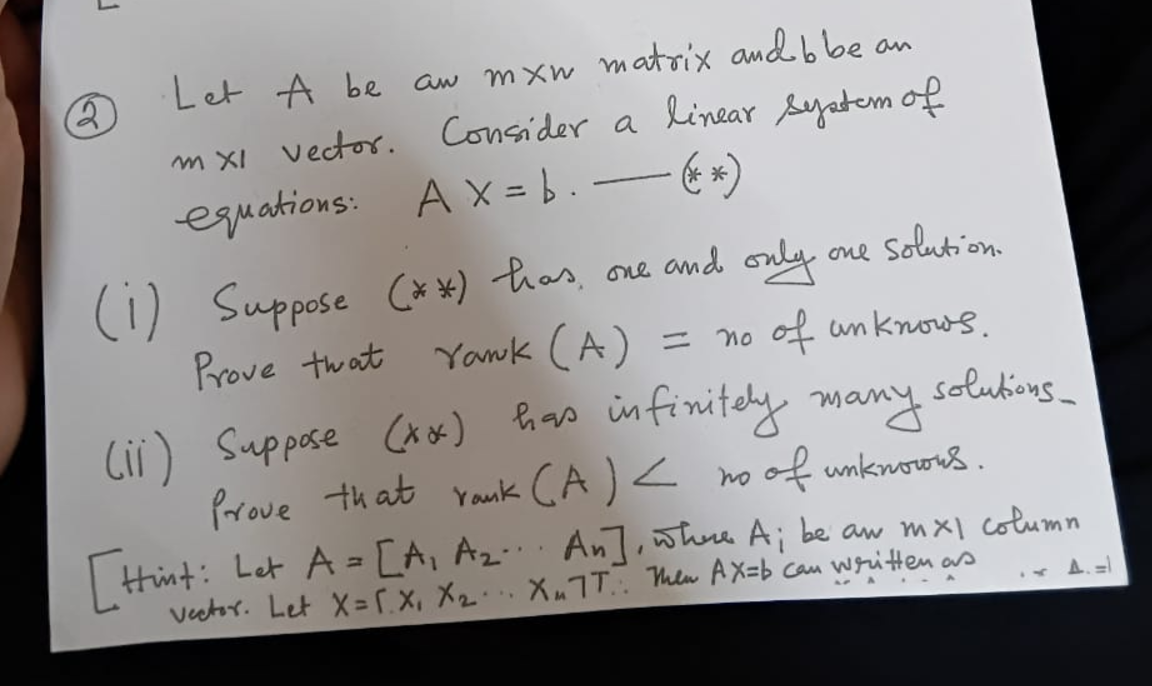 ② Let A be an mxn matrix and b be an
m x1 vector. Consider a linear system of
equations: A X = b. —— (**)
(i) Suppose (**) has one and only one solution.
Prove that rank (A) = no of unknows.
(ii) Suppose (**) has infinitely many solutions
Prove that rank (A) < no of unknowns.
[Hint: Let A = [A1 A2 ... An], where Ai be an mx1 column
vector. Let X = [X1 X2 ... Xn]T. Then AX=b can written as